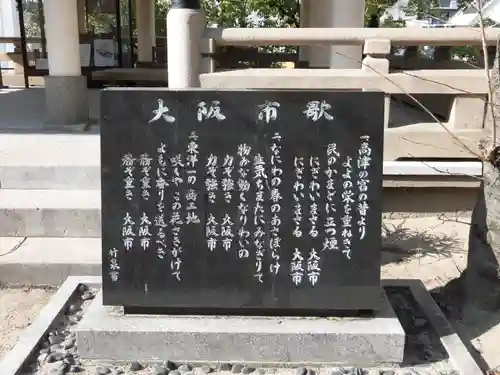 大阪市歌
一高津の宮の昔より
よよの栄を重ねきて
民のかまどに立つ煙
にぎわいまさる 大阪市
にぎわいまさる 大阪市
二なにわの春のあさぼらけ
生気ちまたにみなぎりて
物みな動くなりわいの
力ぞ強き 大阪市
力ぞ強き 大阪市
三東洋一の商工地
咲くやこの花さきがけて
よもに香りを送るべき
務ぞ重き 大阪市
務ぞ重き 大阪市